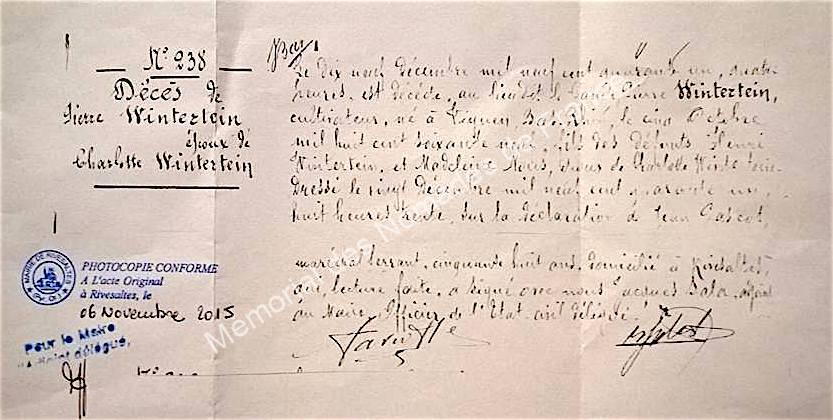 N° 238
Décès de
Pierre Wintertein
époux de
Charlotte Wintertein
Le dix neuf décembre mil neuf cent quarante un, quatre
heures, est décédé, au lieudit Pierre Wintertein,
cultivateur, né à Bas-Rhin, le cinq Octobre
mil huit cent soixante neuf, fils des défunts Henri
Wintertein, et Madeleine époux de Charlotte Wintertein
Dressé le vingt Décembre mil neuf cent quarante un,
huit heures trente, sur la déclaration de Jean Gascot,
maréchal ferrant, cinquante huit ans, domicilié à Rivesaltes,
qui, lecture faite, a signé avec nous Jacques adjoint
au Maire, Officier de l'Etat civil délégué.
MAIRIE DE RIVESALTES
PHOTOCOPIE CONFORME
A L'acte Original
à Rivesaltes, le
06 Novembre 2015
Pour le Maire
délégué,
Memorial des Nomades de France